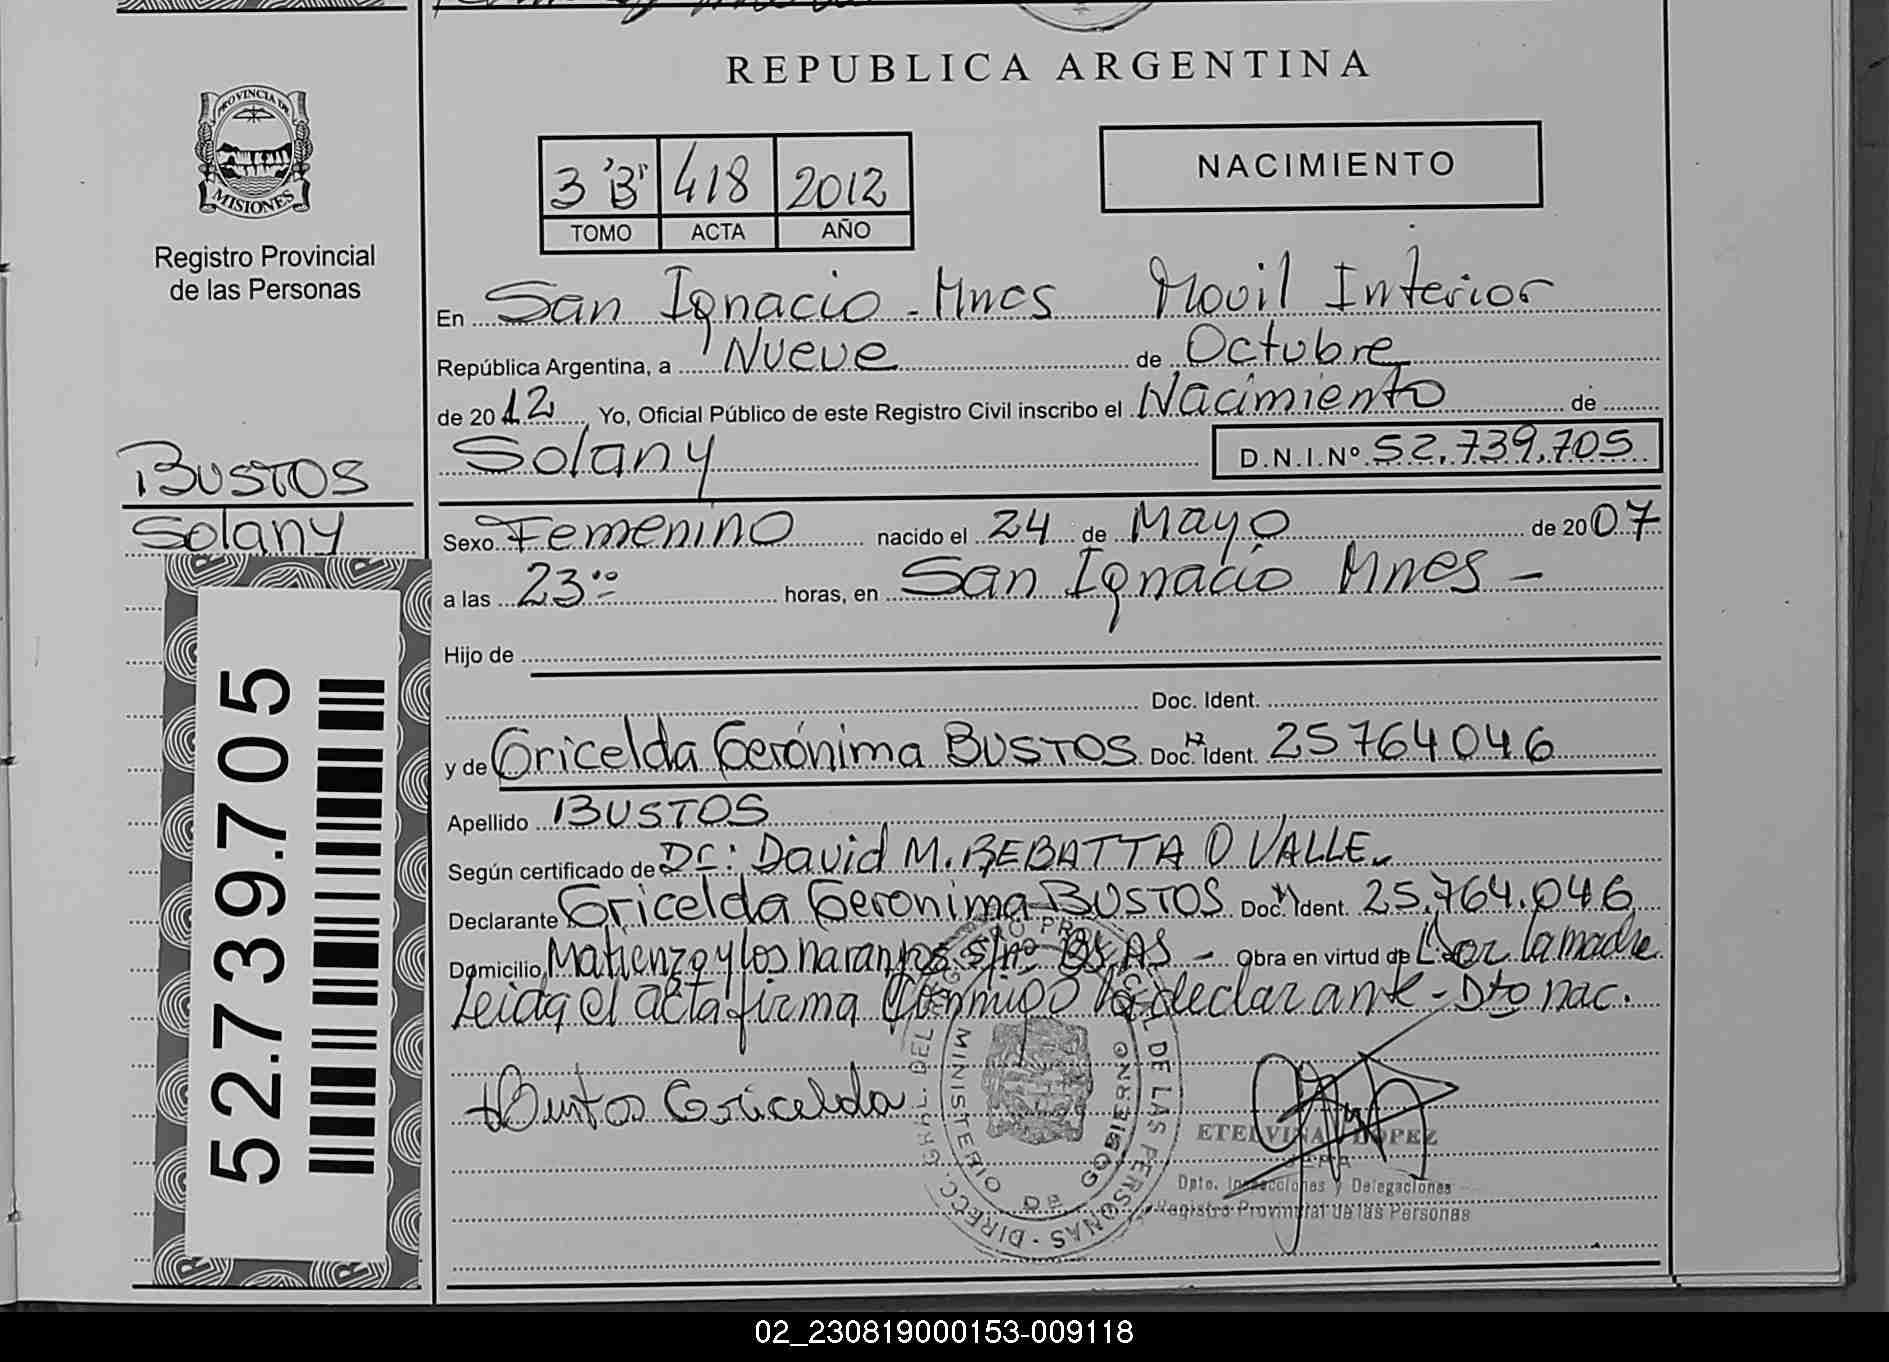 REPUBLICA ARGENTINA
PROVINCIA DE
MISIONES
Registro Provincial
de las Personas
3 "B" 418 2012
TOMO ACTA AÑO
NACIMIENTO
En San Ignacio - Mnes Movil Interior
República Argentina, a Nueve de Octubre
de 2012 Yo, Oficial Público de este Registro Civil inscribo el Nacimiento de
Solany D.N.I.Nº 52.739.705
BUSTOS
Solany
Sexo Femenino nacido el 24 de Mayo de 2007
a las 23 horas, en San Ignacio Mnes -
Hijo de
Doc. Ident.
y de Gricelda Gerónima BUSTOS Doc. Ident. 25764046
Apellido BUSTOS
Según certificado de Dr: David M. BEBATTA O VALLE.
Declarante Gricelda Geronima BUSTOS Doc. Ident. 25.764.046
Domicilio Matienzo y los naranjos s/nº Bs AS - Obra en virtud de Por la madre
Leida el acta firma Conmigo la declarante - Dto nac.
Bustos Gricelda
52.739.705
DIRECC. GRAL. DEL REGISTRO PROVINCIAL DE LAS PERSONAS
MINISTERIO DE GOBIERNO
ETELVINA LOPEZ
JEFA
Dpto. Inspecciones y Delegaciones
Registro Provincial de las Personas
02_230819000153-009118